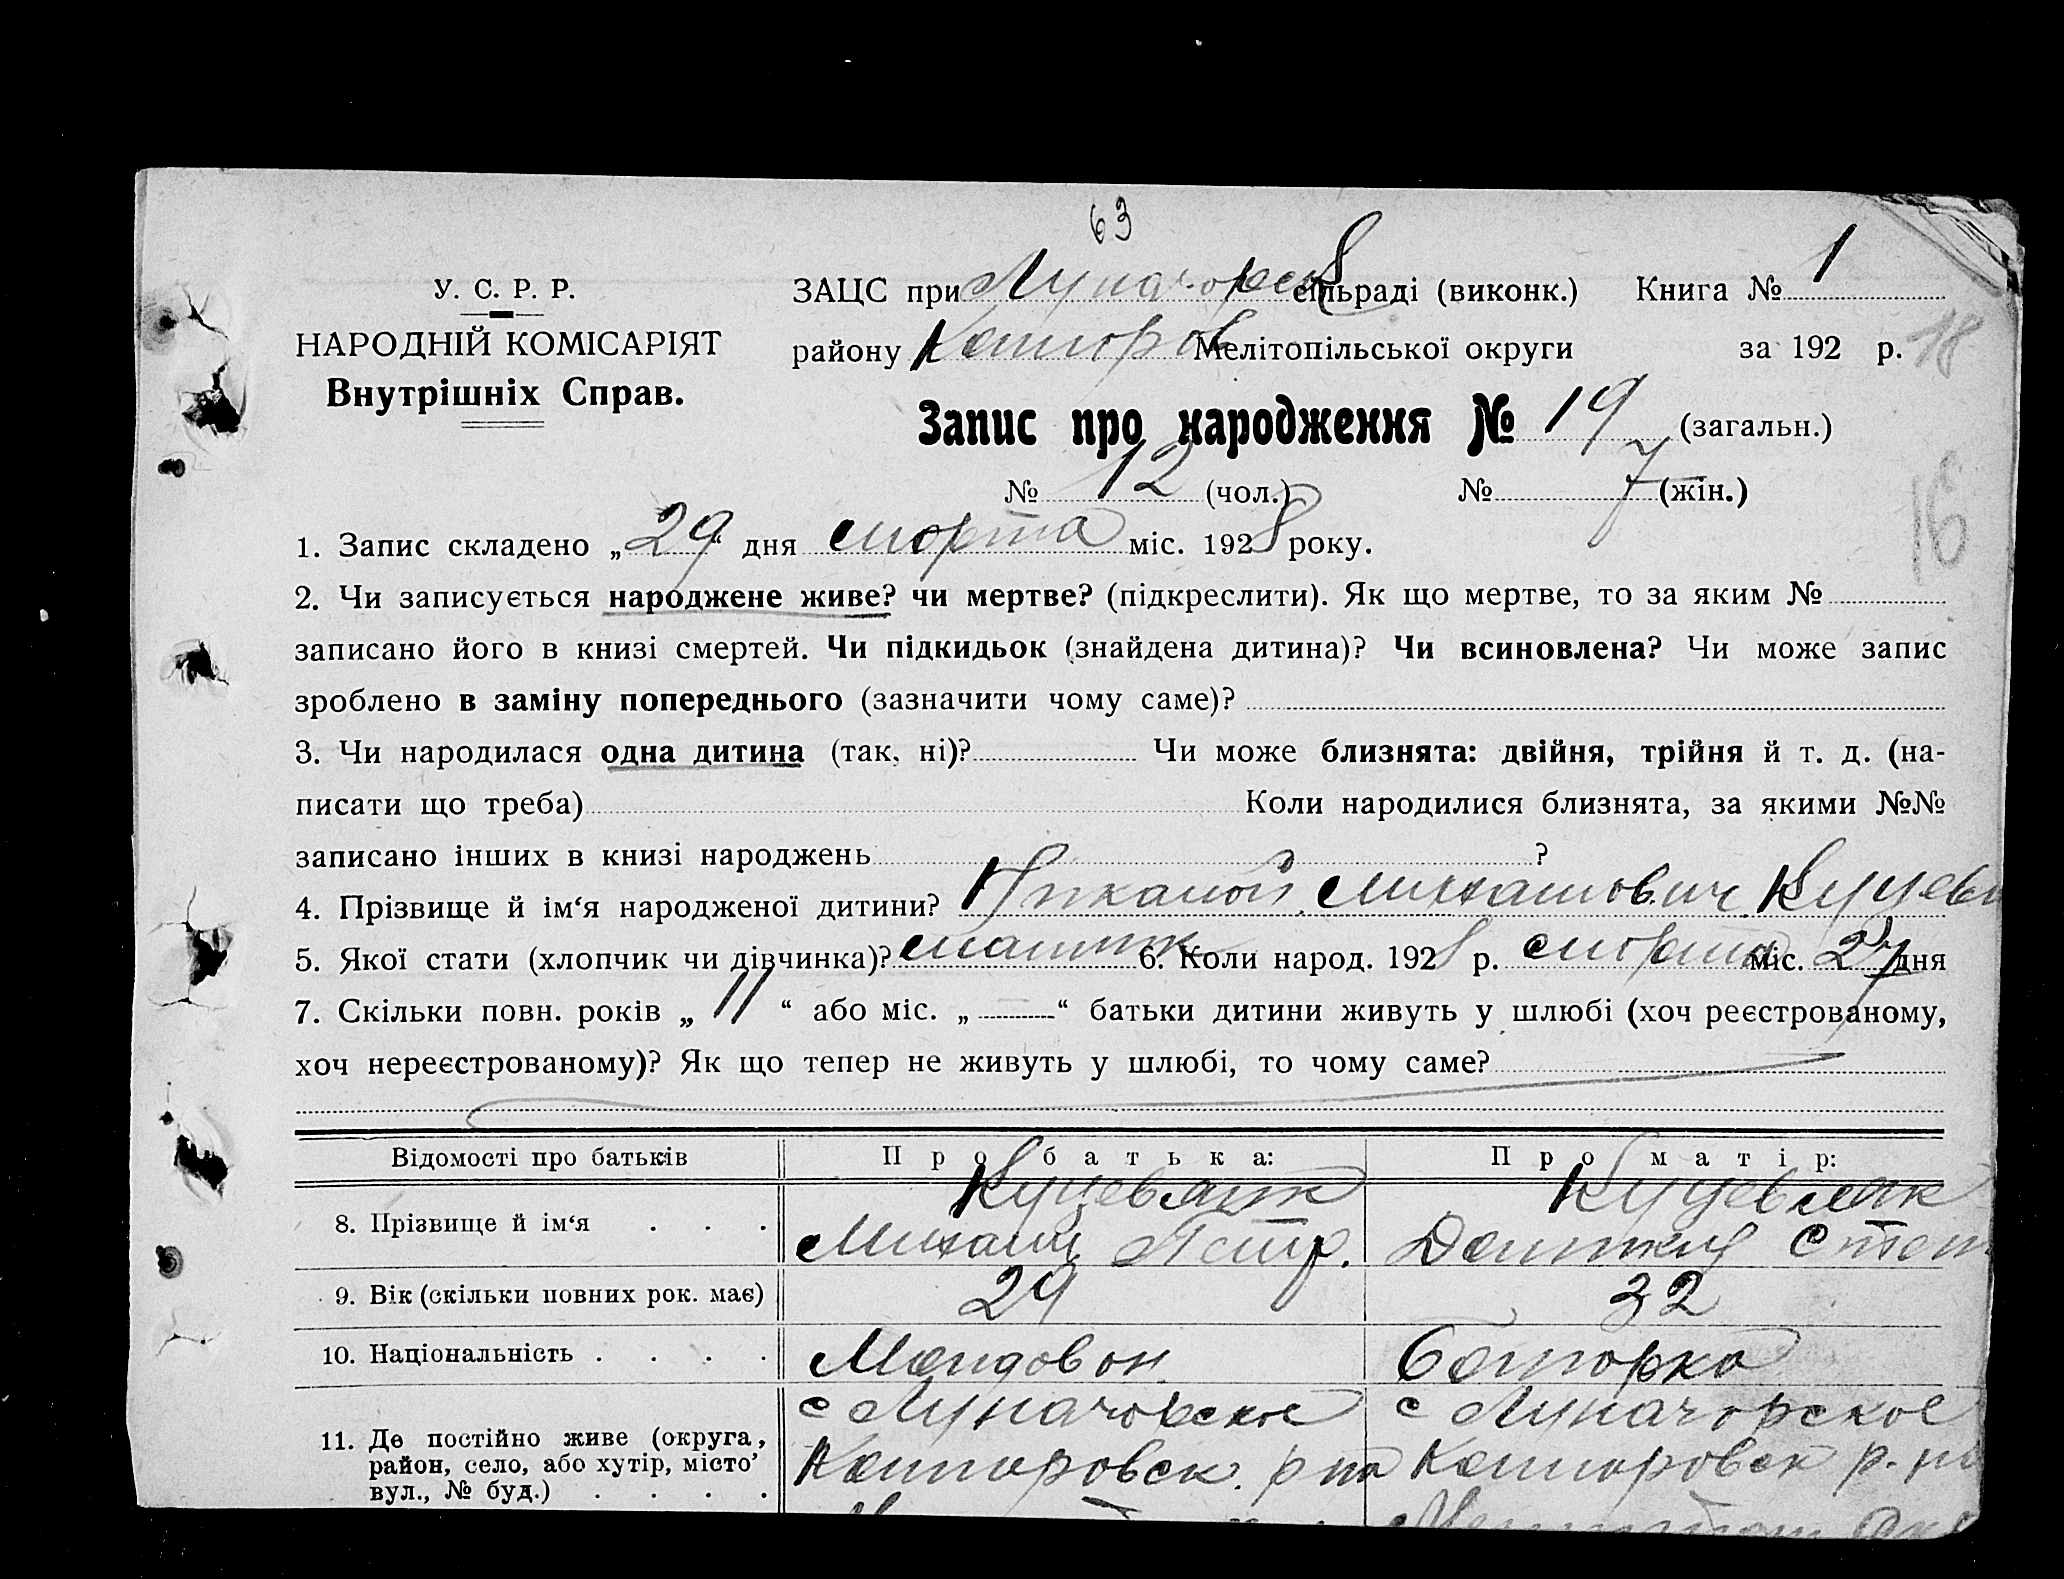 63
У. С. Р. Р.
НАРОДНІЙ КОМІСАРІЯТ
Внутрішніх Справ.
ЗАЦС при Луначорск сільраді (виконк.) Книга № 1
району Мелітопільської округи за 192 р.
18
Запис про народження № 19 (загальн.)
№ 12 (чол.) № 7 (жін.)
16
1. Запис складено „29“ дня марта міс. 1928 року.
2. Чи записується народжене живе? чи мертве? (підкреслити). Як що мертве, то за яким №
записано його в книзі смертей. Чи підкидьок (знайдена дитина)? Чи всиновлена? Чи може запис
зроблено в заміну попереднього (зазначити чому саме)?
3. Чи народилася одна дитина (так, ні)? Чи може близнята: двійня, трійня й т. д. (на-
писати що треба) Коли народилися близнята, за якими №№
записано інших в книзі народжень ?
4. Прізвище й ім‘я народженої дитини? Михайлович
5. Якої стати (хлопчик чи дівчинка)? 6. Коли народ. 1928 р. марта міс. 27 дня
7. Скільки повн. років „ 11 “ або міс. „ — “ батьки дитини живуть у шлюбі (хоч реєстрованому,
хоч нереєстрованому)? Як що тепер не живуть у шлюбі, то чому саме?
Відомості про батьків Про батька: Про матір:
8. Прізвище й ім‘я . . . Куцевляк Куцевляк
Михаил Петр.
9. Вік (скільки повних рок. має) 29 32
10. Національність . . . . Молдован Болгорка
11. Де постійно живе (округа, район, село, або хутір, місто’ вул., № буд.) . . . .
с Луначорское с Луначорское
р на р. на